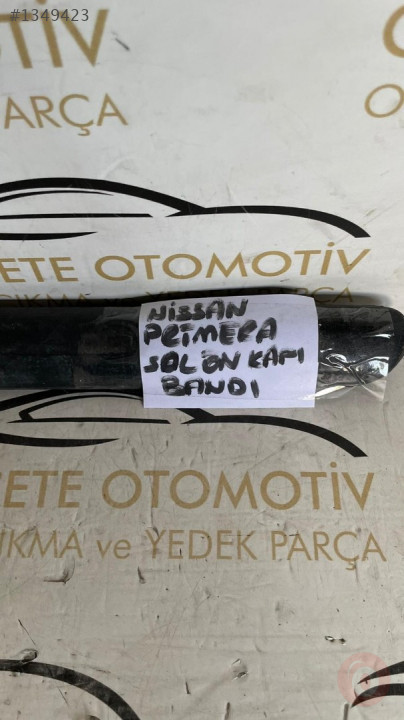 #1349423
OTOMOTİV
PARÇA
ETE OTOMOTİV
NİSSAN
PRİMERA
SOL ÖN KAPI
BANDI
ETE OTOMOTİV
IKMA ve YEDEK PARÇA